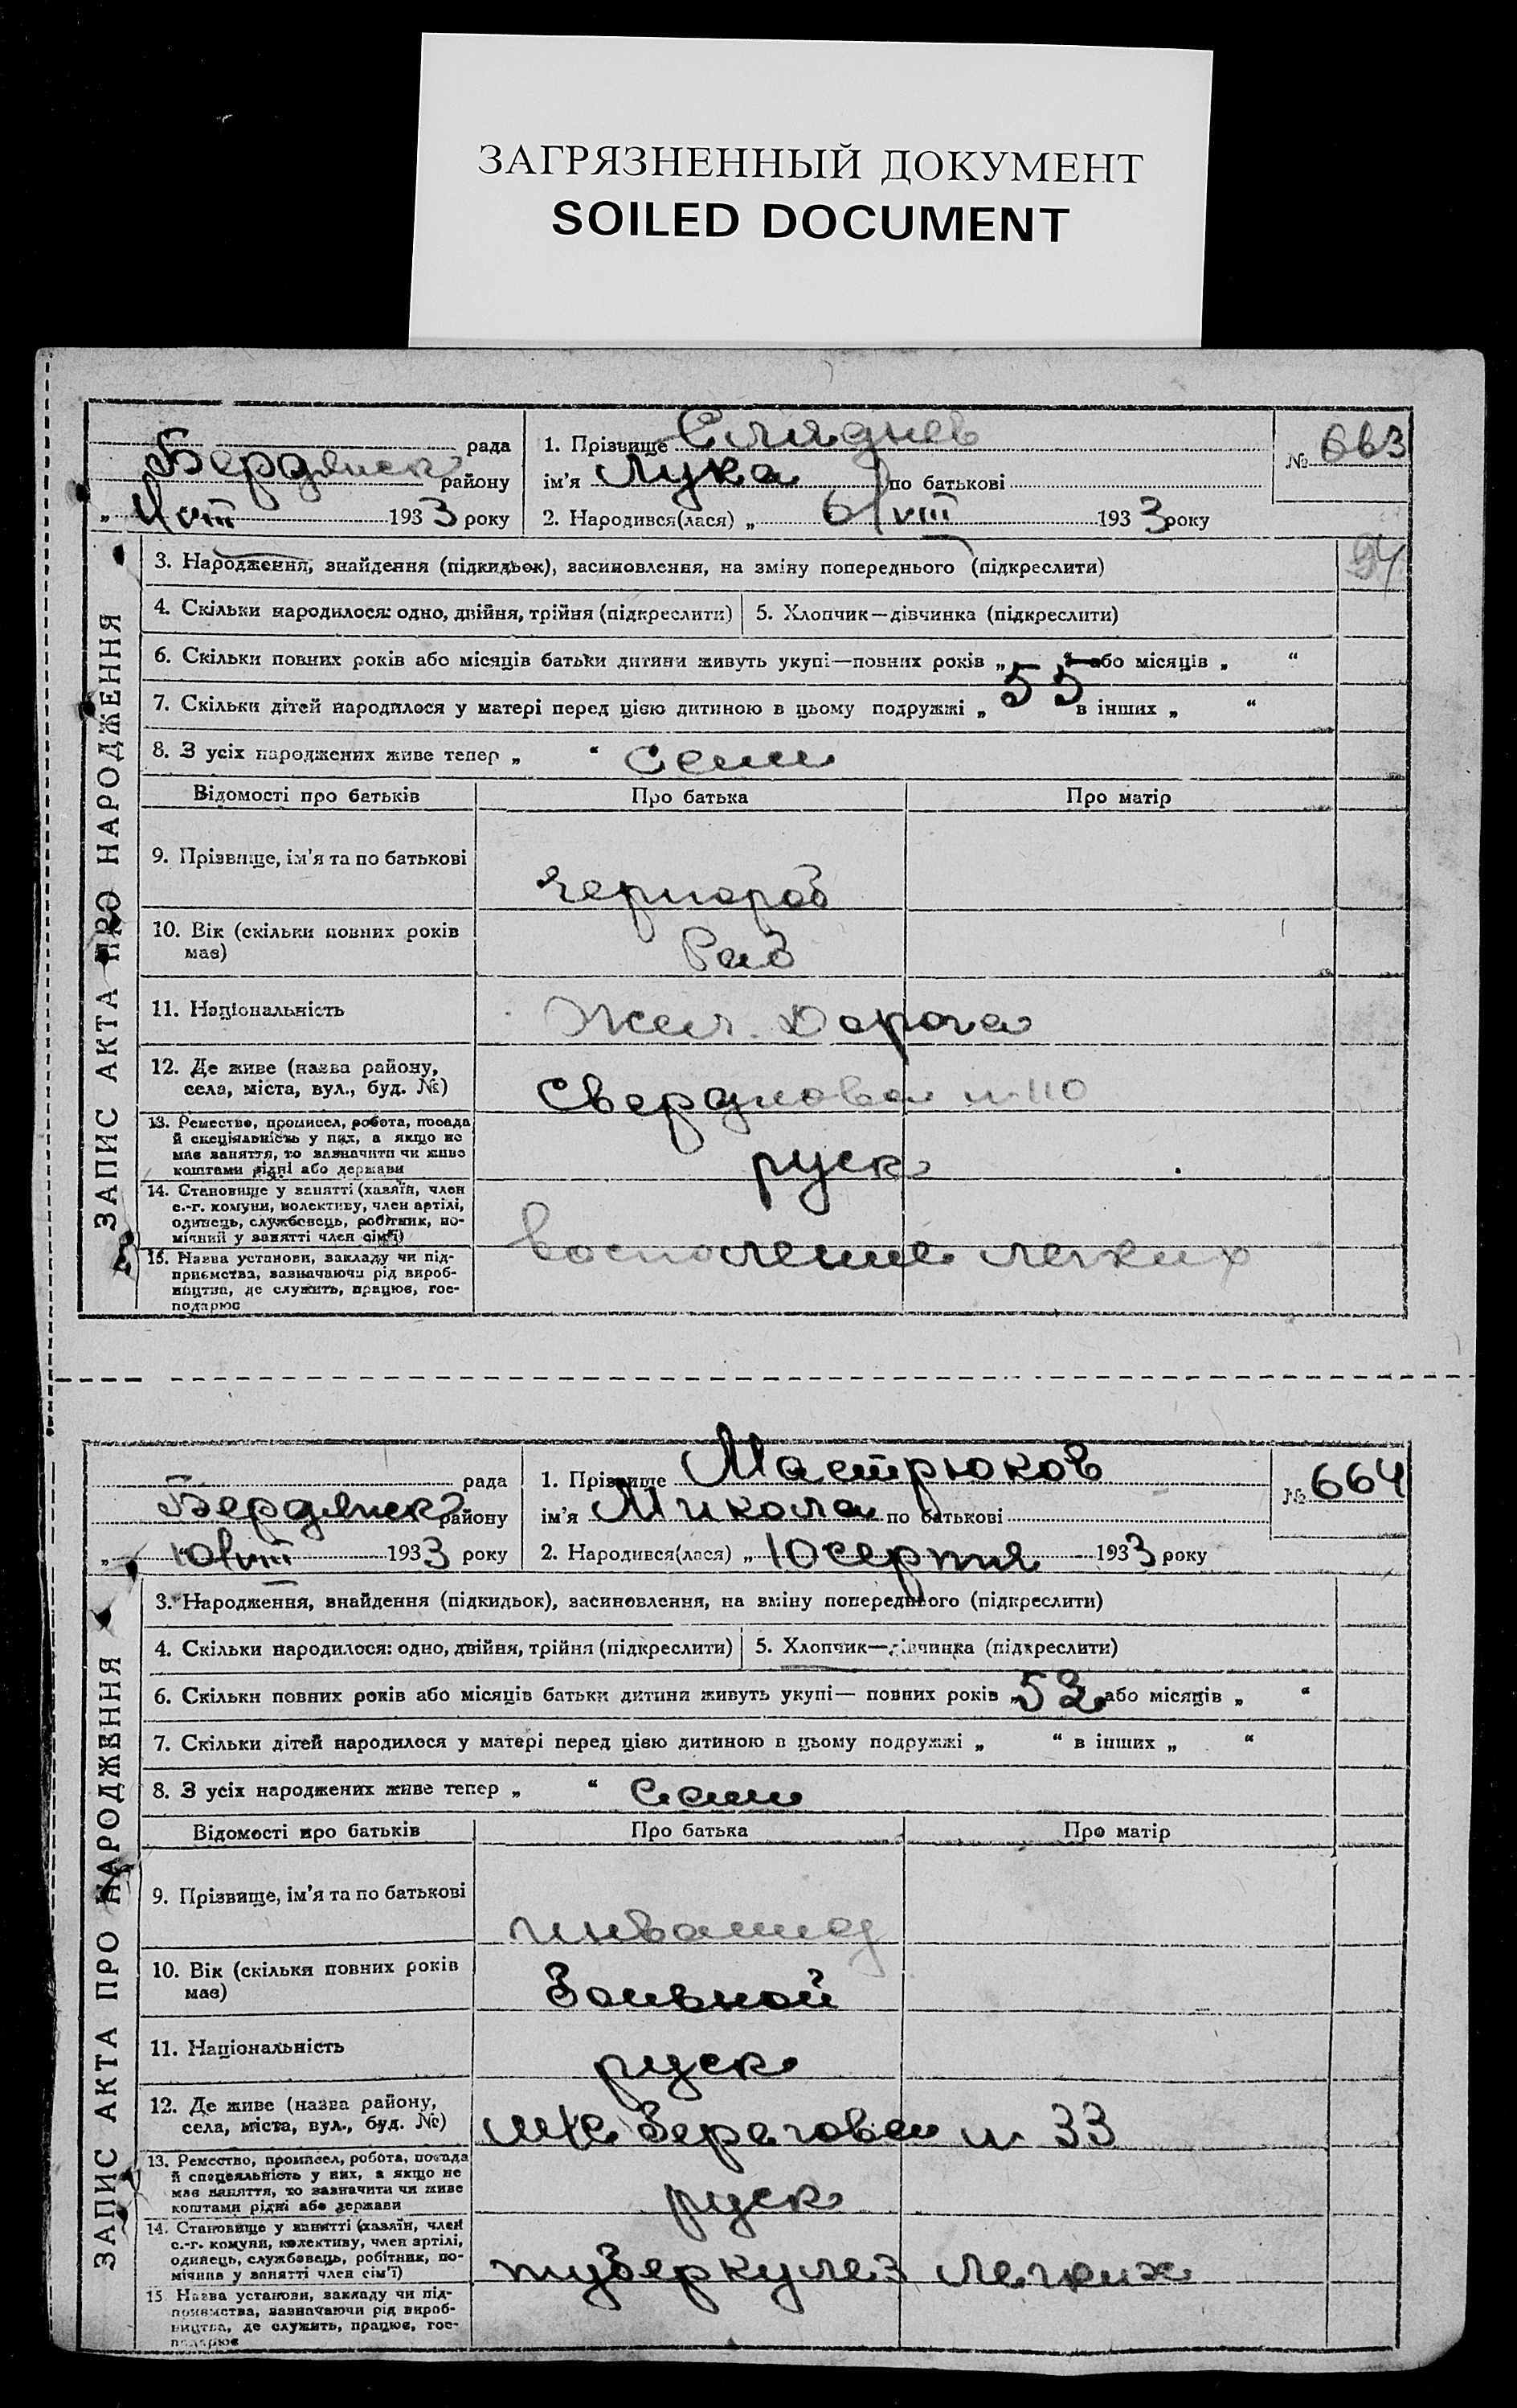 ЗАГРЯЗНЕННЫЙ ДОКУМЕНТ
SOILED DOCUMENT
рада 1. Прізвище Сляднев № 663
Бердянск району ім'я Лука по батькові
VIII 1933 року 2. Народився(лася) „ 6/VIII 1933 року
ЗАПИС АКТА ПРО НАРОДЖЕННЯ
3. Народження, знайдення (підкидьок), засиновлення, на зміну попереднього (підкреслити)
4. Скільки народилося: одно, двійня, трійня (підкреслити) 5. Хлопчик—дівчинка (підкреслити)
6. Скільки повних років або місяців батьки дитини живуть укупі—повних років „ “ або місяців „ “
55
7. Скільки дітей народилося у матері перед цією дитиною в цьому подружжі „ в інших „ “
8. З усіх народжених живе тепер „ “ Семи
Відомості про батьків Про батька Про матір
9. Прізвище, ім'я та по батькові чернораб
10. Вік (скільки повних років має) Раб
11. Національність Жел. Дорога
12. Де живе (назва району, села, міста, вул., буд. №) Свердлова н 110
13. Ремество, промисел, робота, посада й спеціяльність у них, а якщо не має заняття, то зазначити чи живе коштами рідні або держави руск
14. Становище у занятті (хазяїн, член с.-г. комуни, колективу, член артілі, одинець, службовець, робітник, помічний у занятті член сім'ї) восполение легких
15. Назва установи, закладу чи підприємства, зазначаючи рід виробництва, де служить, працює, господарює
рада 1. Прізвище Мастрюков № 664
Бердянск району ім'я Микола по батькові
„ 10/VIII 1933 року 2. Народився(лася) „ 10 серпня 1933 року
ЗАПИС АКТА ПРО НАРОДЖЕННЯ
3. Народження, знайдення (підкидьок), засиновлення, на зміну попереднього (підкреслити)
4. Скільки народилося: одно, двійня, трійня (підкреслити) 5. Хлопчик—дівчинка (підкреслити)
6. Скільки повних років або місяців батьки дитини живуть укупі— повних років „ 52 або місяців „ “
7. Скільки дітей народилося у матері перед цією дитиною в цьому подружжі „ “ в інших „ “
8. З усіх народжених живе тепер „ “ Семи
Відомості про батьків Про батька Про матір
9. Прізвище, ім'я та по батькові инвалид
10. Вік (скільки повних років має)
11. Національність руск
12. Де живе (назва району, села, міста, вул., буд. №) Береговая н 33
13. Ремество, промисел, робота, посада й спецеяльність у них, а якщо не має заняття, то зазначити чи живе коштами рідні або держави руск
14. Становище у занятті (хазяїн, член с.-г. комуни, колективу, член артілі, одинець, службовець, робітник, помічний у занятті член сім'ї) туберкулез легких
15. Назва установи, закладу чи підприємства, зазначаючи рід виробництва, де служить, працює, господарює